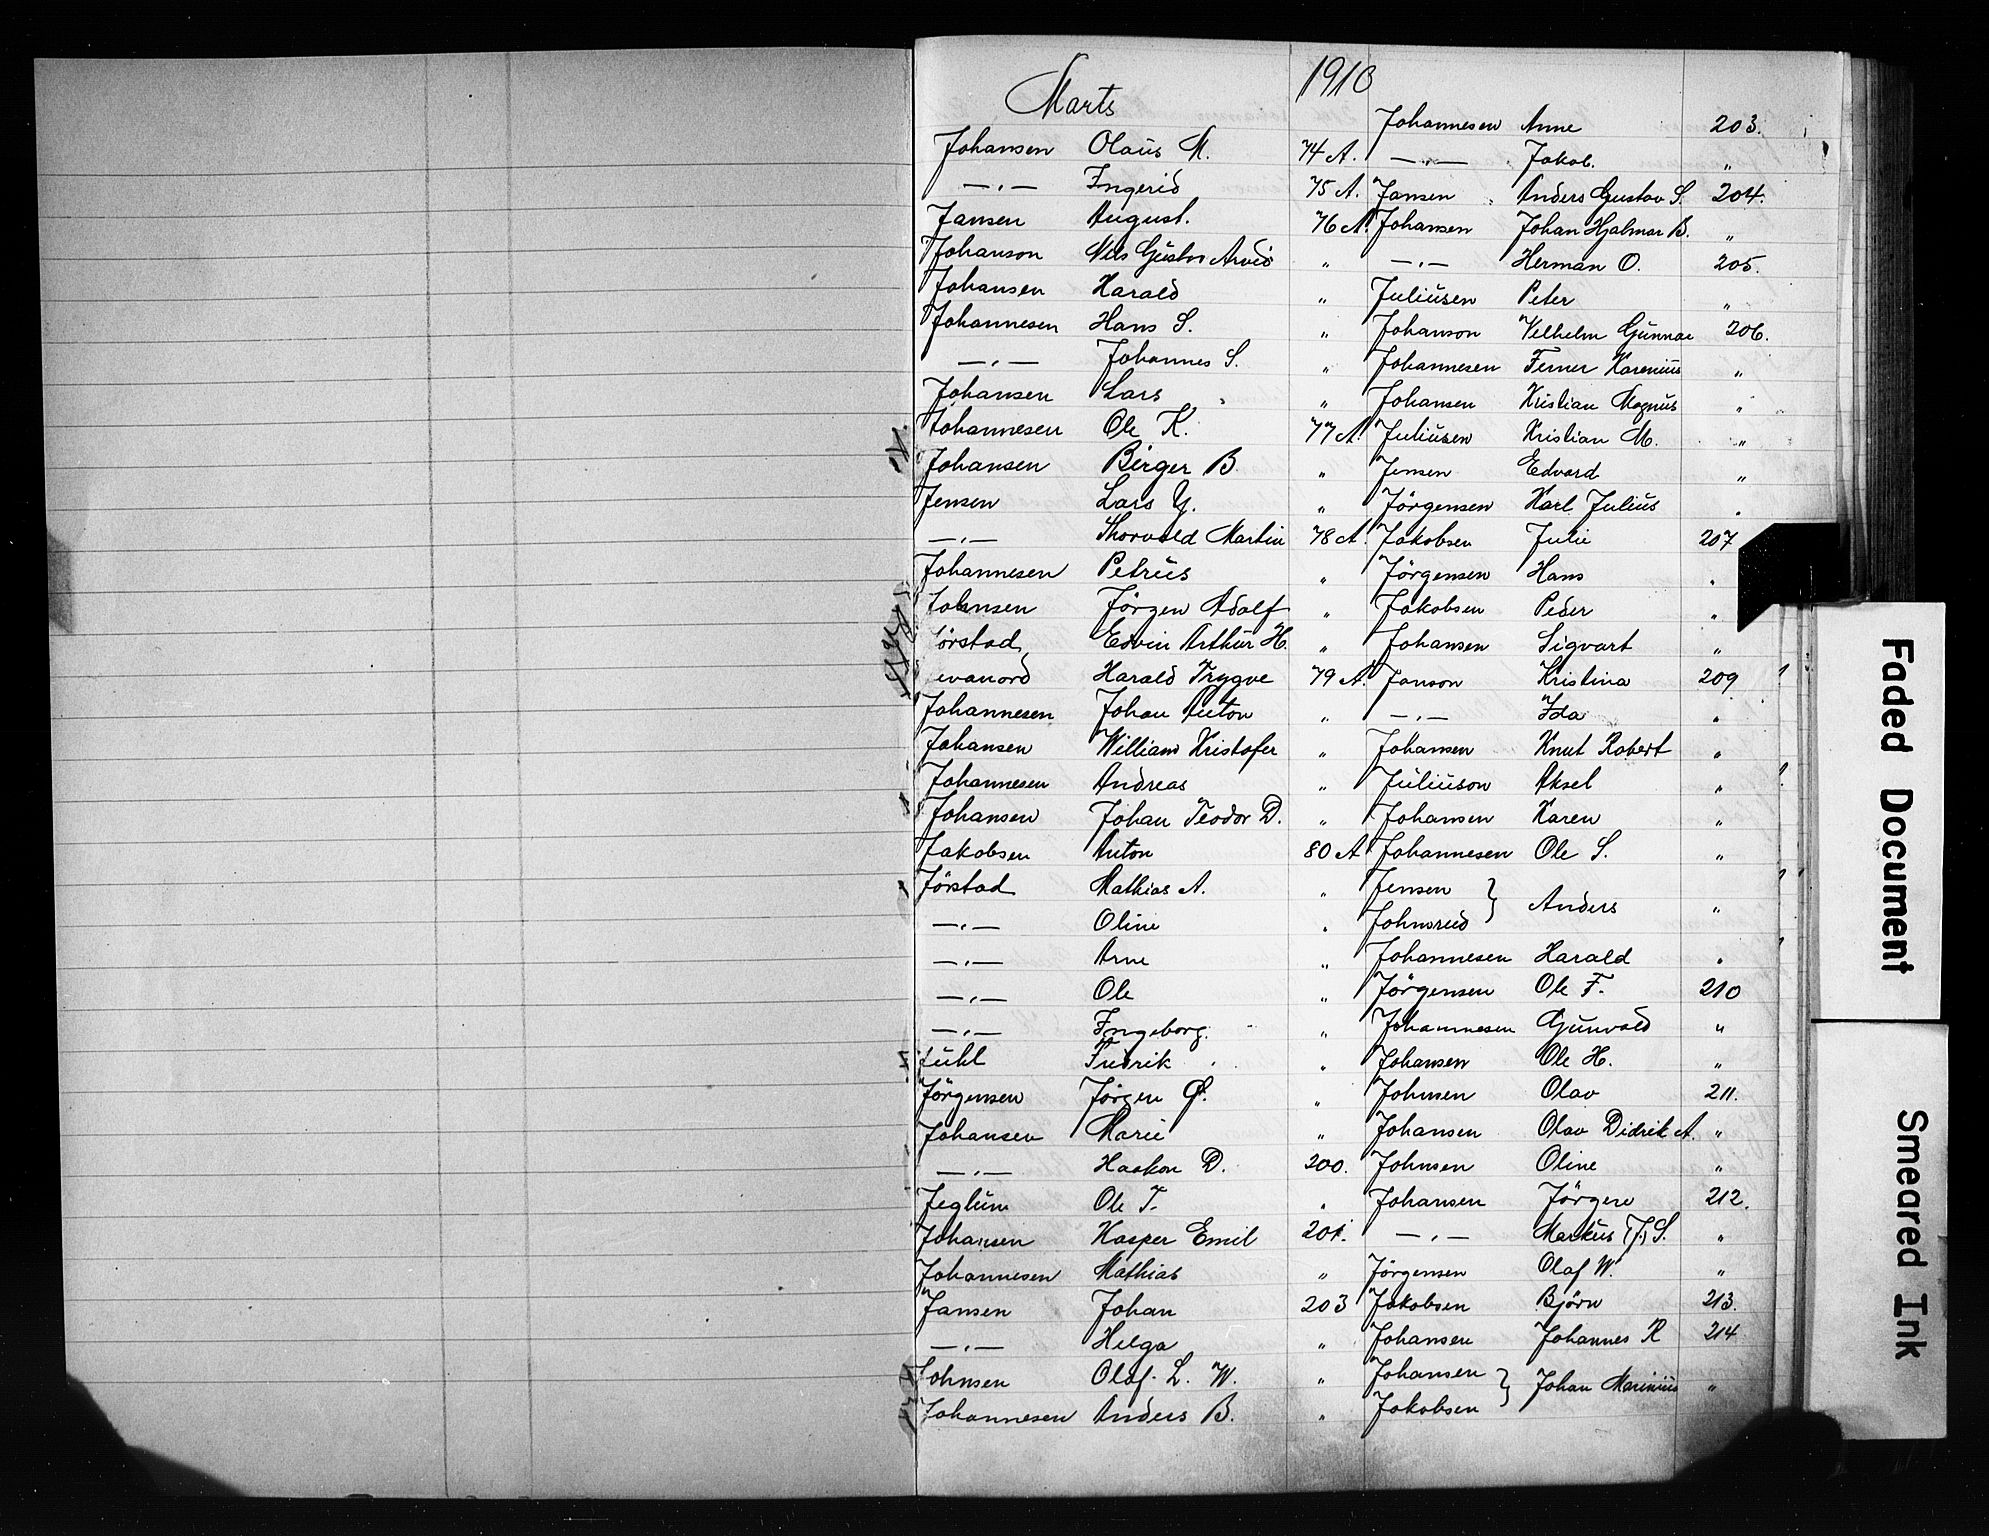 Marts 1910
Johansen Olaus M. 74 A.
—„— Ingerid 75 A.
Jansen August. 76 A.
Johanson Nils Gustav Arvid „
Johansen Harald „
Johannesen Hans S. „
—„— Johannes S. „
Johansen Lars „
Johannesen Ole K. 77 A.
Johansen Birger B. „
Jensen Lars Y. „
—„— Thorvald Martin 78 A.
Johannesen Petrus „
Johnsen Jörgen Adolf „
Jörstad Edvin Arthur H. „
evanord Harald Trygve 79 A.
Johannesen Johan Anton „
Johansen William Kristofer „
Johannesen Andreas „
Johansen Johan Teodor D. „
Jakobsen Anton 80 A
Jörstad Mathias A. „
—„— Oline „
—„— Arne „
—„— Ole „
—„— Ingeborg. „
Juhl Fredrik „
Jörgensen Jörgen Ø. „
Johansen Marie „
—„— Haakon D. 200.
Jeglum Ole T. „
Johansen Kasper Emil 201.
Johannesen Mathias „
Jansen Johan 203
—„— Helga „
Johnsen Olaf. L. W. „
Johannesen Anders B. „
Johannesen Anne 203.
—„— Jakob. „
Jansen Anders Gustav S. 204.
Johansen Johan Hjalmar B. „
—„— Herman O. 205.
Juliusen Peter „
Johanson Vilhelm Gunnar 206.
Johannesen Ferner Karenius „
Johansen Kristian Magnus „
Juliusen Kristian M. „
Jensen Edvard „
Jörgensen Karl Julius „
Jakobsen Julie 207
Jörgensen Hans „
Jakobsen Peder „
Johansen Sigvart „
Janson Kristina 209
—„— Ida „
Johansen Knut Robert „
Juliuson Aksel „
Johansen Karen „
Johannesen Ole S. „
Jensen } Anders „
Johnsrud
Johannesen Harald „
Jörgensen Ole F. 210
Johannesen Gunvald „
Johansen Ole H. „
Johnsen Olav 211.
Johansen Olav Didrik A. „
Johnsen Oline „
Johansen Jörgen 212.
—„— Markus (J.) S. „
Jörgensen Olaf W. „
Jakobsen Björn 213.
Johansen Johannes R 214
Johansen } Johan Marinius „
Jakobsen
Faded Document
Smeared Ink